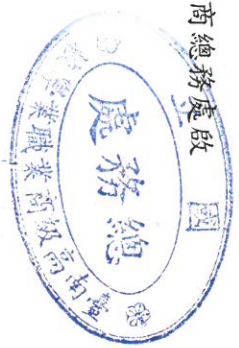 商總務處啟
國立
臺南高級商業職業學校
總務處